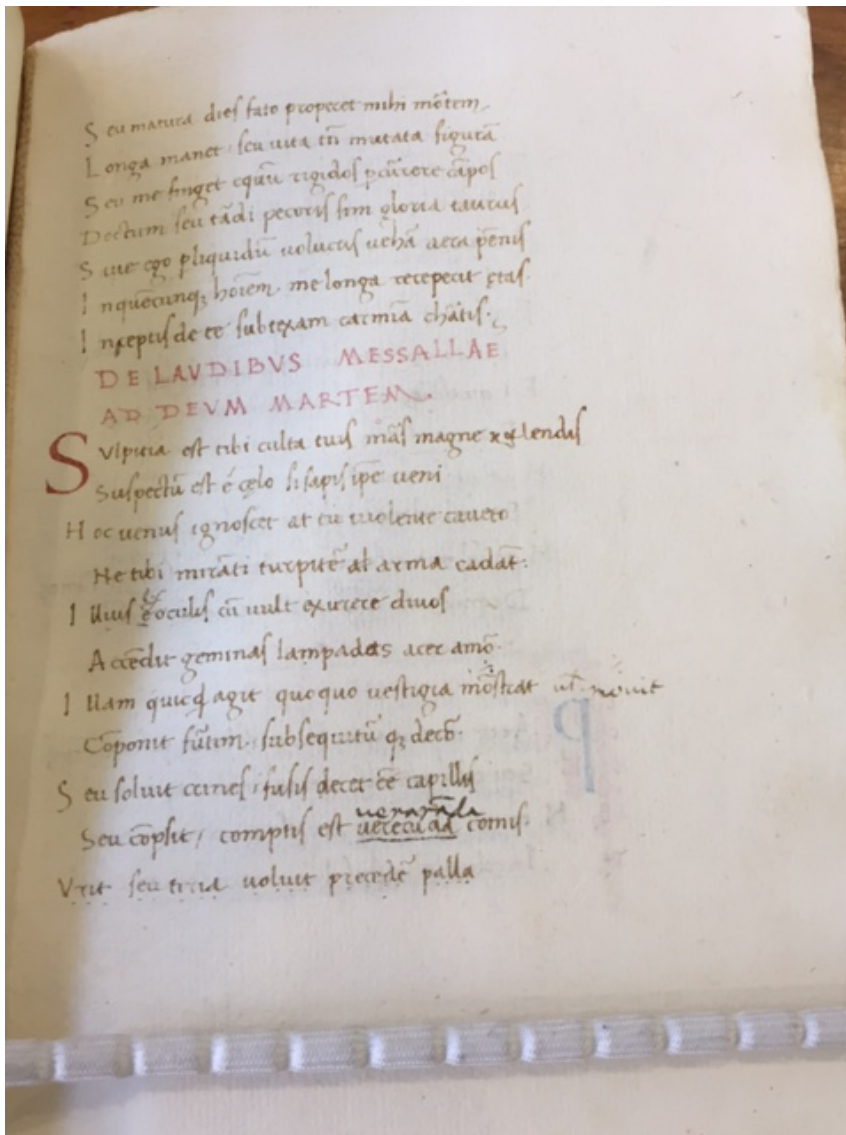 S eu matura dies fato properet mihi mōtem
L onga manet seu uita tn̄ mutata figurā
S eu me finget equū rigidos ꝑcurrere cāpos
Doctum seu tādi pecoris sim gloria taurus
S iue ego pliquidū uolucris uehā aera pēnis
I nquēcunqꝫ hoīem me longa receperit ętas.
I nceptis de te subtexam carmīa chātis.
DE LAVDIBVS MESSALLAE
AD DEVM MARTEM.
S Vlpitia est tibi culta tuis mās magne kalendis
Suspectū est é cęlo si sapis ipē ueni
H oc uenus ignoscet at tu uiolente caueto
Ne tibi mirāti turpitē al arma cadāt:
I llius é ex oculis cū uult exurere diuos
Accēdit geminas lampadas acer amō.
I llam quicq̄d agit quoquo uestigia mōstrat ut mouit
Cōponit fūtim subsequitū qꝫ decō.
S eu soluit crines / fusis decet eē capillis
Seu cōpsit / comptis est uerecūda uenerāda comis.
Vrit seu tiria uoluit precedē palla